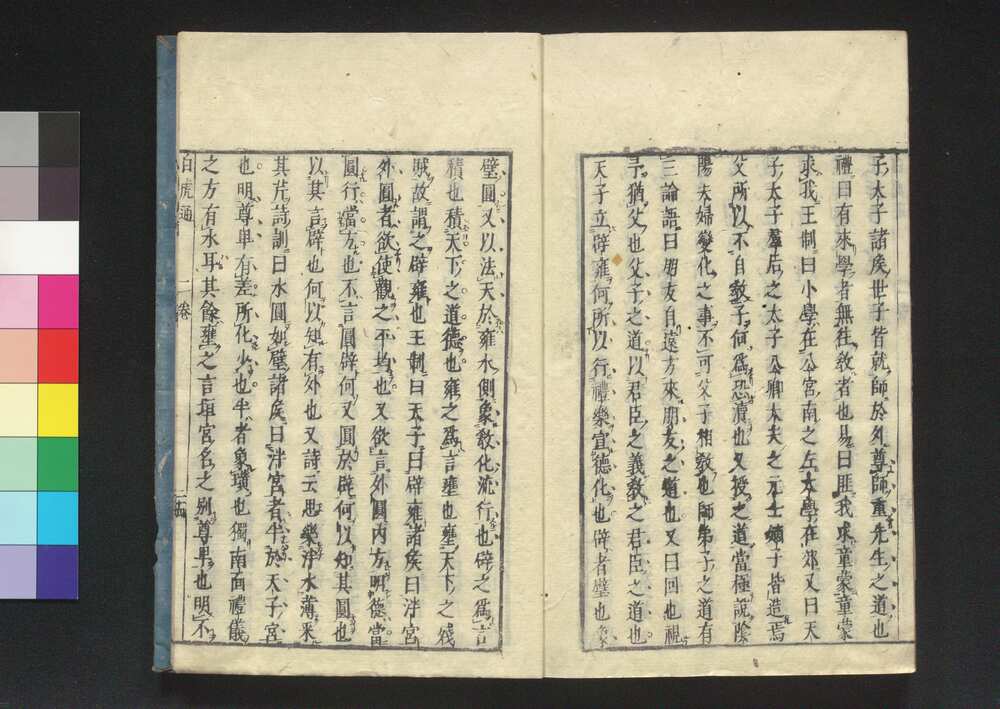 子太子諸矦世子皆就師於外尊師重先生之道也
禮曰有來學者無往敎者也易曰匪我求童蒙童蒙
求我王制曰小學在公宮南之左太學在郊又曰天
子太子羣后之太子公卿大夫之元士嫡子皆造焉
父所以不自敎子何爲恐瀆也又授之道當極說陰
陽夫婦變化之事不可父子相敎也師弟子之道有
三論語曰朋友自遠方來朋友之道也又曰回也視
予猶父也父子之道以君臣之義敎之君臣之道也
天子立辟雍何所以行禮樂宣德化也辟者璧也象
璧圓又以法天於雍水側象敎化流行也辟之爲言
積也積天下之道德也雍之爲言壅也壅天下之殘
賊故謂之辟雍也王制曰天子曰辟雍諸矦曰泮宮
外圓者欲使觀之平均也又欲言外圓內方明德當
圓行當方也不言圓辟何又圓於辟何以知其圓也
以其言辟也何以知有外也又詩云思樂泮水薄采
其芹詩訓曰水圓如璧諸矦曰泮宮者半於天子宮
也明尊卑有差所化少也半者象璜也獨南面禮儀
之方有水耳其餘壅之言垣宮名之別尊卑也明不
白虎通 二卷